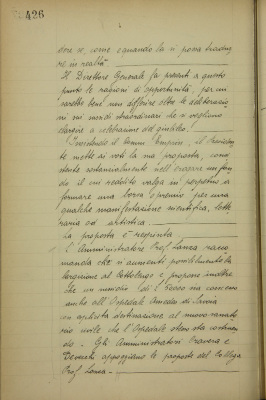 426
dove se, come e quando la si possa tradur
re in realtà.
Il Direttore Generale fa presenti a questo
punto le ragioni di opportunità, per cui
sarebbe bene non differire oltre le deliberazio
ni sui sussidi straordinari che si vogliono
elargire a celebrazione del giubileo.
Insistendo il Comm. il Presidente
mette ai voti la sua proposta, consi
stente sostanzialmente nell'erogare un fon
do il cui reddito valga in perpetuo a
formare una borsa o premio per una
qualche manifestazione scientifica, lette
raria od artistica.
La proposta è respinta.
L'Amministratore Prof. Lanza racco
manda che si aumenti possibilmente la
elargizione al Cottolengo e propone inoltre
che un sussidio di £ sia concesso
anche all'Ospedale
con esplicita destinazione al nuovo sanato
rio civile che l'Ospedale stesso sta costruen
do. - Gli Amministratori e
appoggiano le proposte del Collega
Prof. Lanza. -